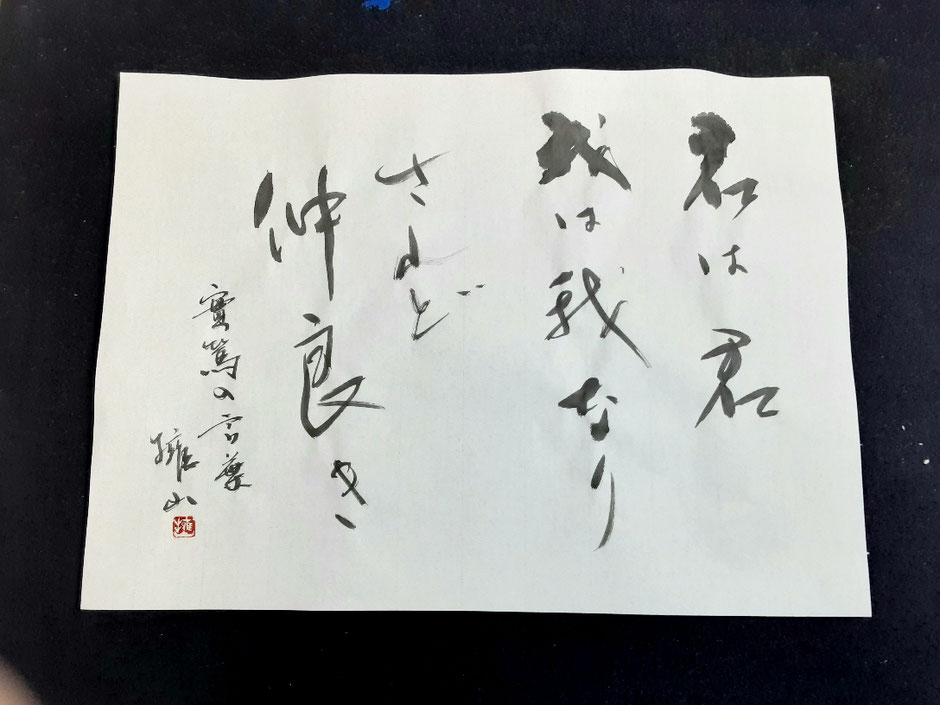 君は君
我は我なり
されど
仲良き
實篤の言葉
擁山
擁